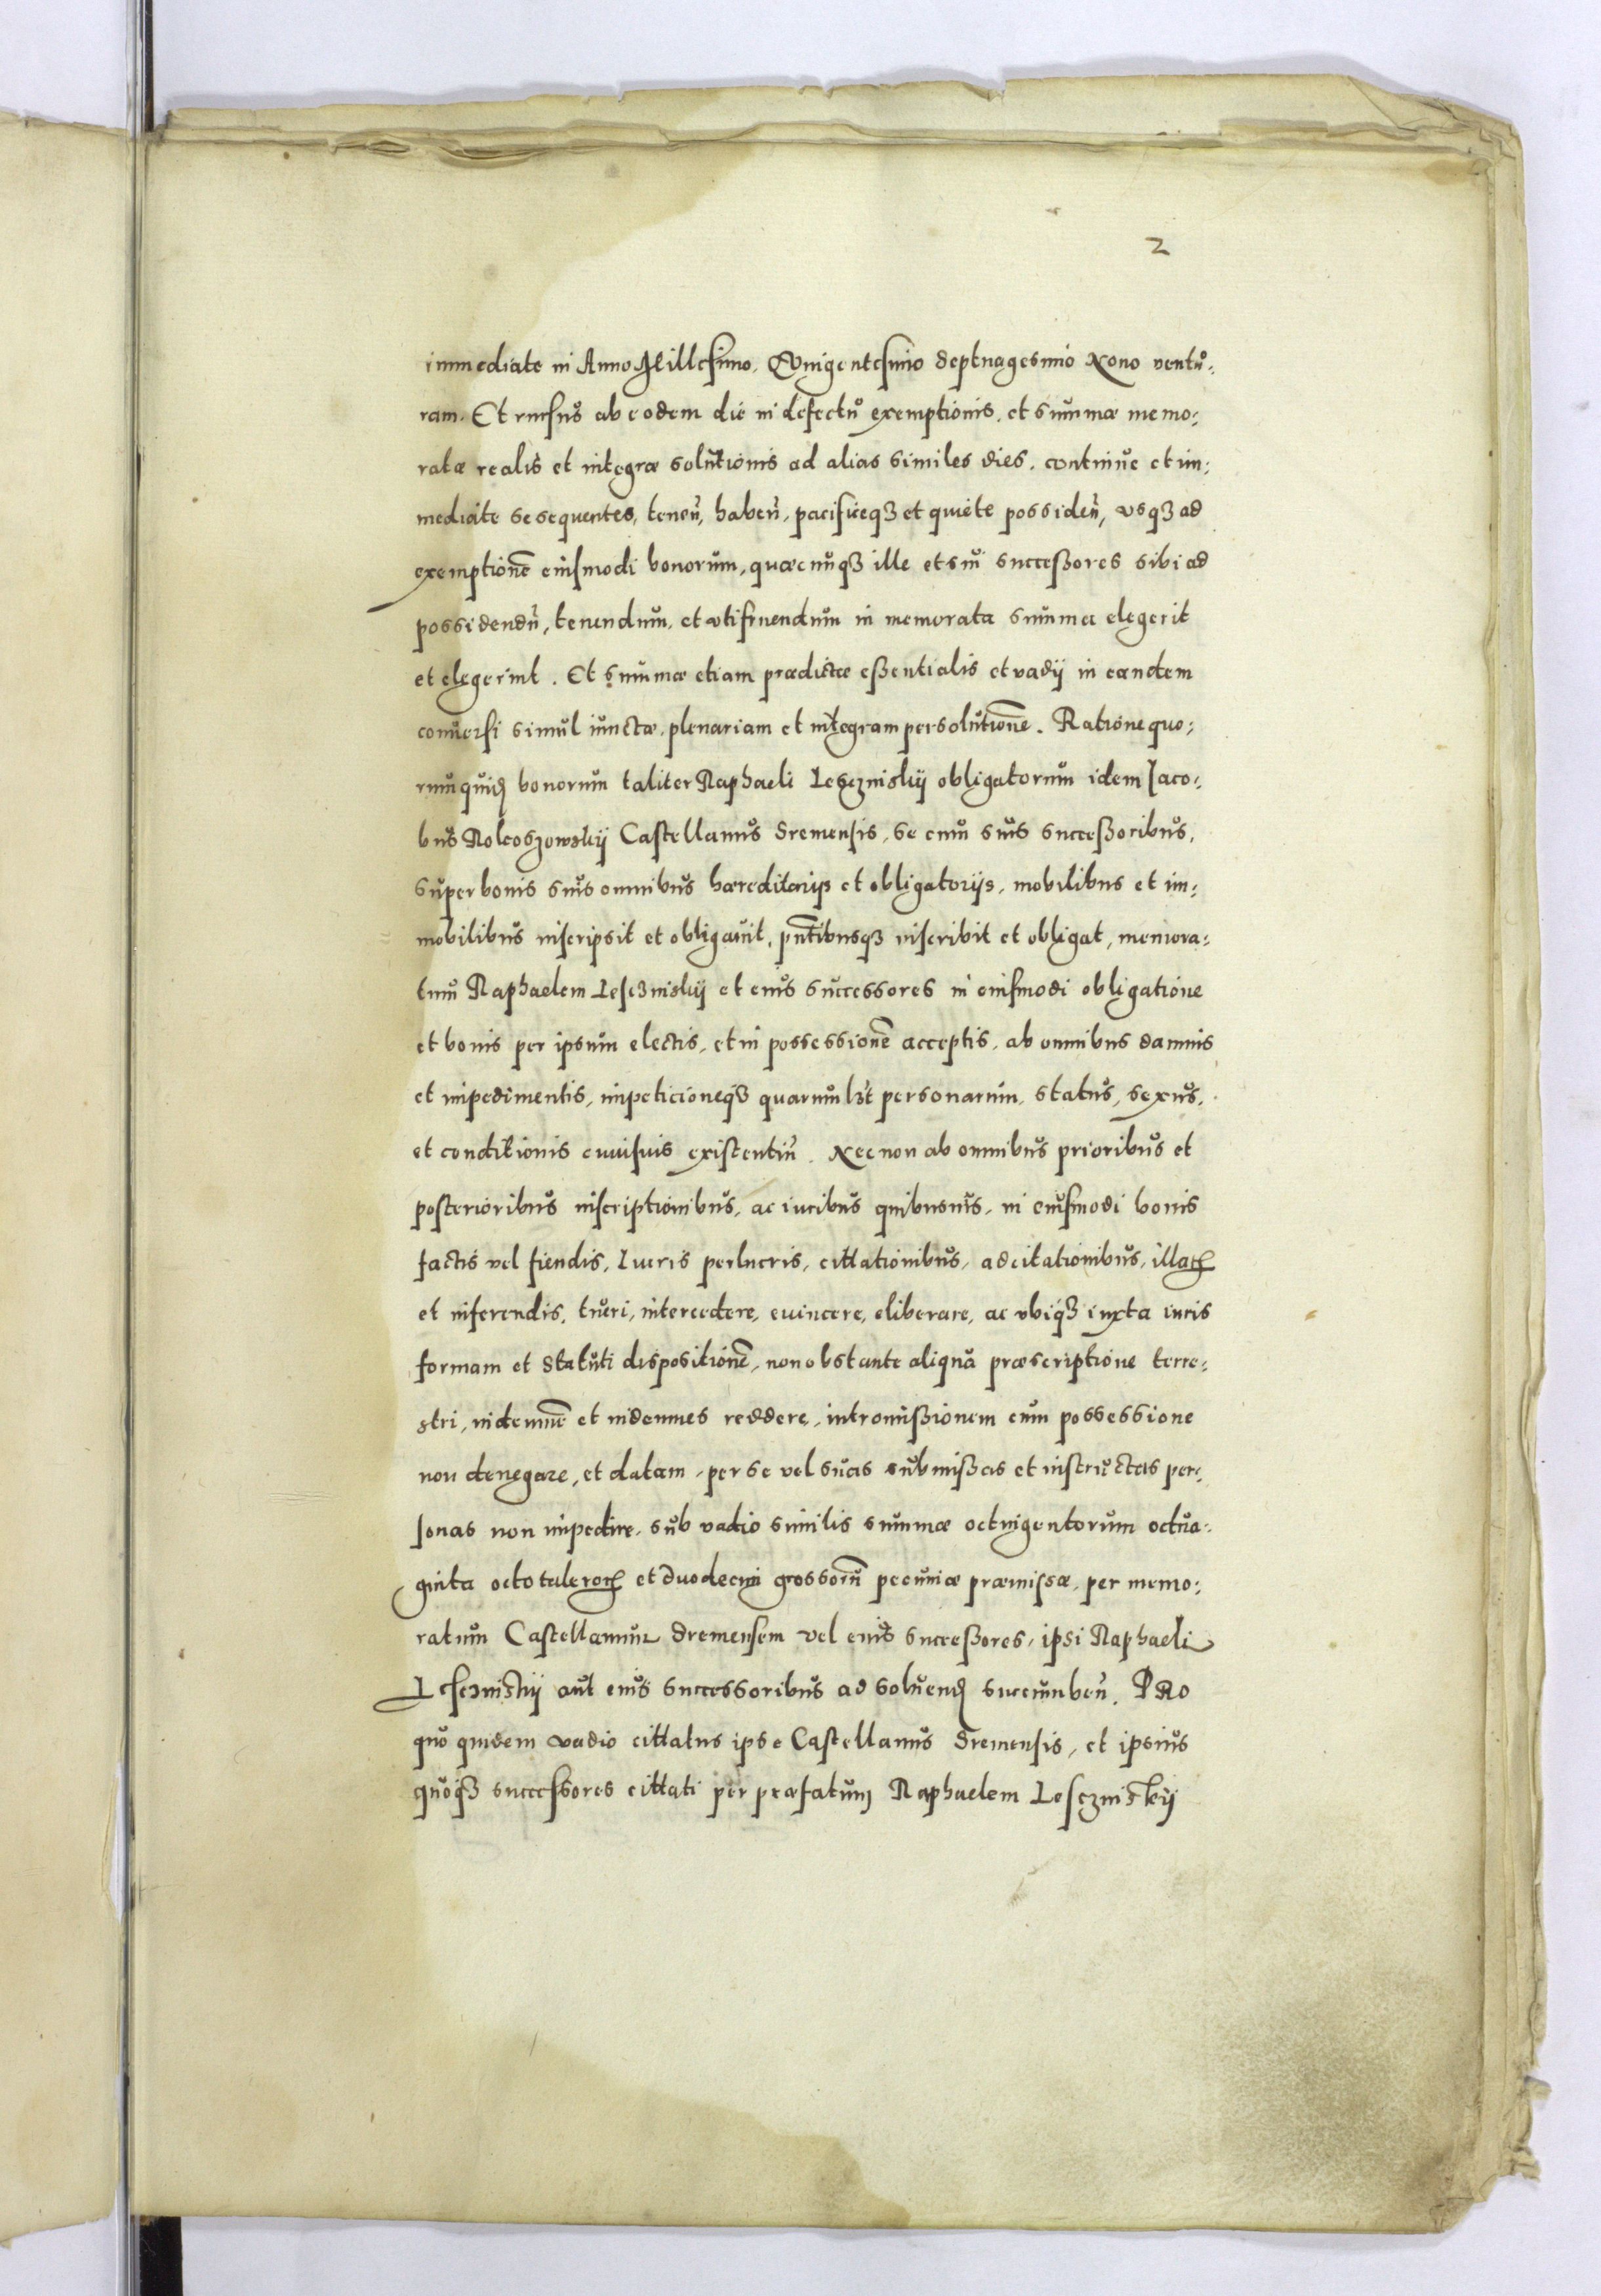 2
immediate in Anno Millesimo. Quingentesimo Septuagesimo Nono ventu:
ram. Et rursus ab eodem die in defectu exemptionis. et summæ memo:
ratæ realis et integræ solutionis ad alias similes dies. continue et im:
mediate sesequentes, tenen̄, haben̄, pacificeqȝ et quiete possiden̄, vsqȝ ad
exemptionē eiusmodi bonorum, quæcunqȝ ille et sui successores sibi ad
possidendū, tenendum, et vtifruendum in memorata summa elegerit
et elegerint. Et summæ etiam prædictæ essentialis et vadij in eandem
conuersi simul iunctæ, plenariam et integram persolutionē. Ratione quo:
rumquidȩ bonorum taliter Raphaeli Lesczniskij obligatorum idem Jaco:
bus Rokoszowskij Castellanus Sremensis, se cum suis successoribus,
super bonis suis omnibus hæreditarijs et obligatorijs, mobilibus et im:
mobilibus inscripsit et obligauit, pn̄tibusqȝ inscribit et obligat, memora:
tum Raphaelem Lesczniskij et eius successores in eiusmodi obligatione
et bonis per ipsum electis, et in possessionē acceptis, ab omnibus damnis
et impedimentis, impeticioneqȝ quarumlȝt personarum, status, sexus,
et conditionis cuiusuis existentiū. Nec non ab omnibus prioribus et
posterioribus inscriptionibus, ac iuribus quibusuis, in eiusmodi bonis
factis vel fiendis, lucris perlucris, cittationibus, adcitationibus, illatꝭ
et inferendis, tueri, intercedere, euincere, eliberare, ac vbiqȝ iuxta iuris
formam et Statuti dispositionē, non obstante aliqua præscriptione terre:
stri, indemnē et indemnes reddere, intromissionem cum possessione
non denegare, et datam, per se vel suas submissas et instructas per:
sonas non impedire, sub vadio similis summæ octuigentorum octua:
ginta octo talerorꝭ et Duodecim grossorū pecuniæ præmissæ, per memo:
ratum Castellanum Sremensem vel eius successores, ipsi Raphaeli
Lesczniskij aut eius successoribus ad soluendȩ succumben̄. PRo
quo quidem vadio cittatus ipse Castellanus Sremensis, et ipsius
quoqȝ successores cittati per præfatum Raphaelem Lesczniskij